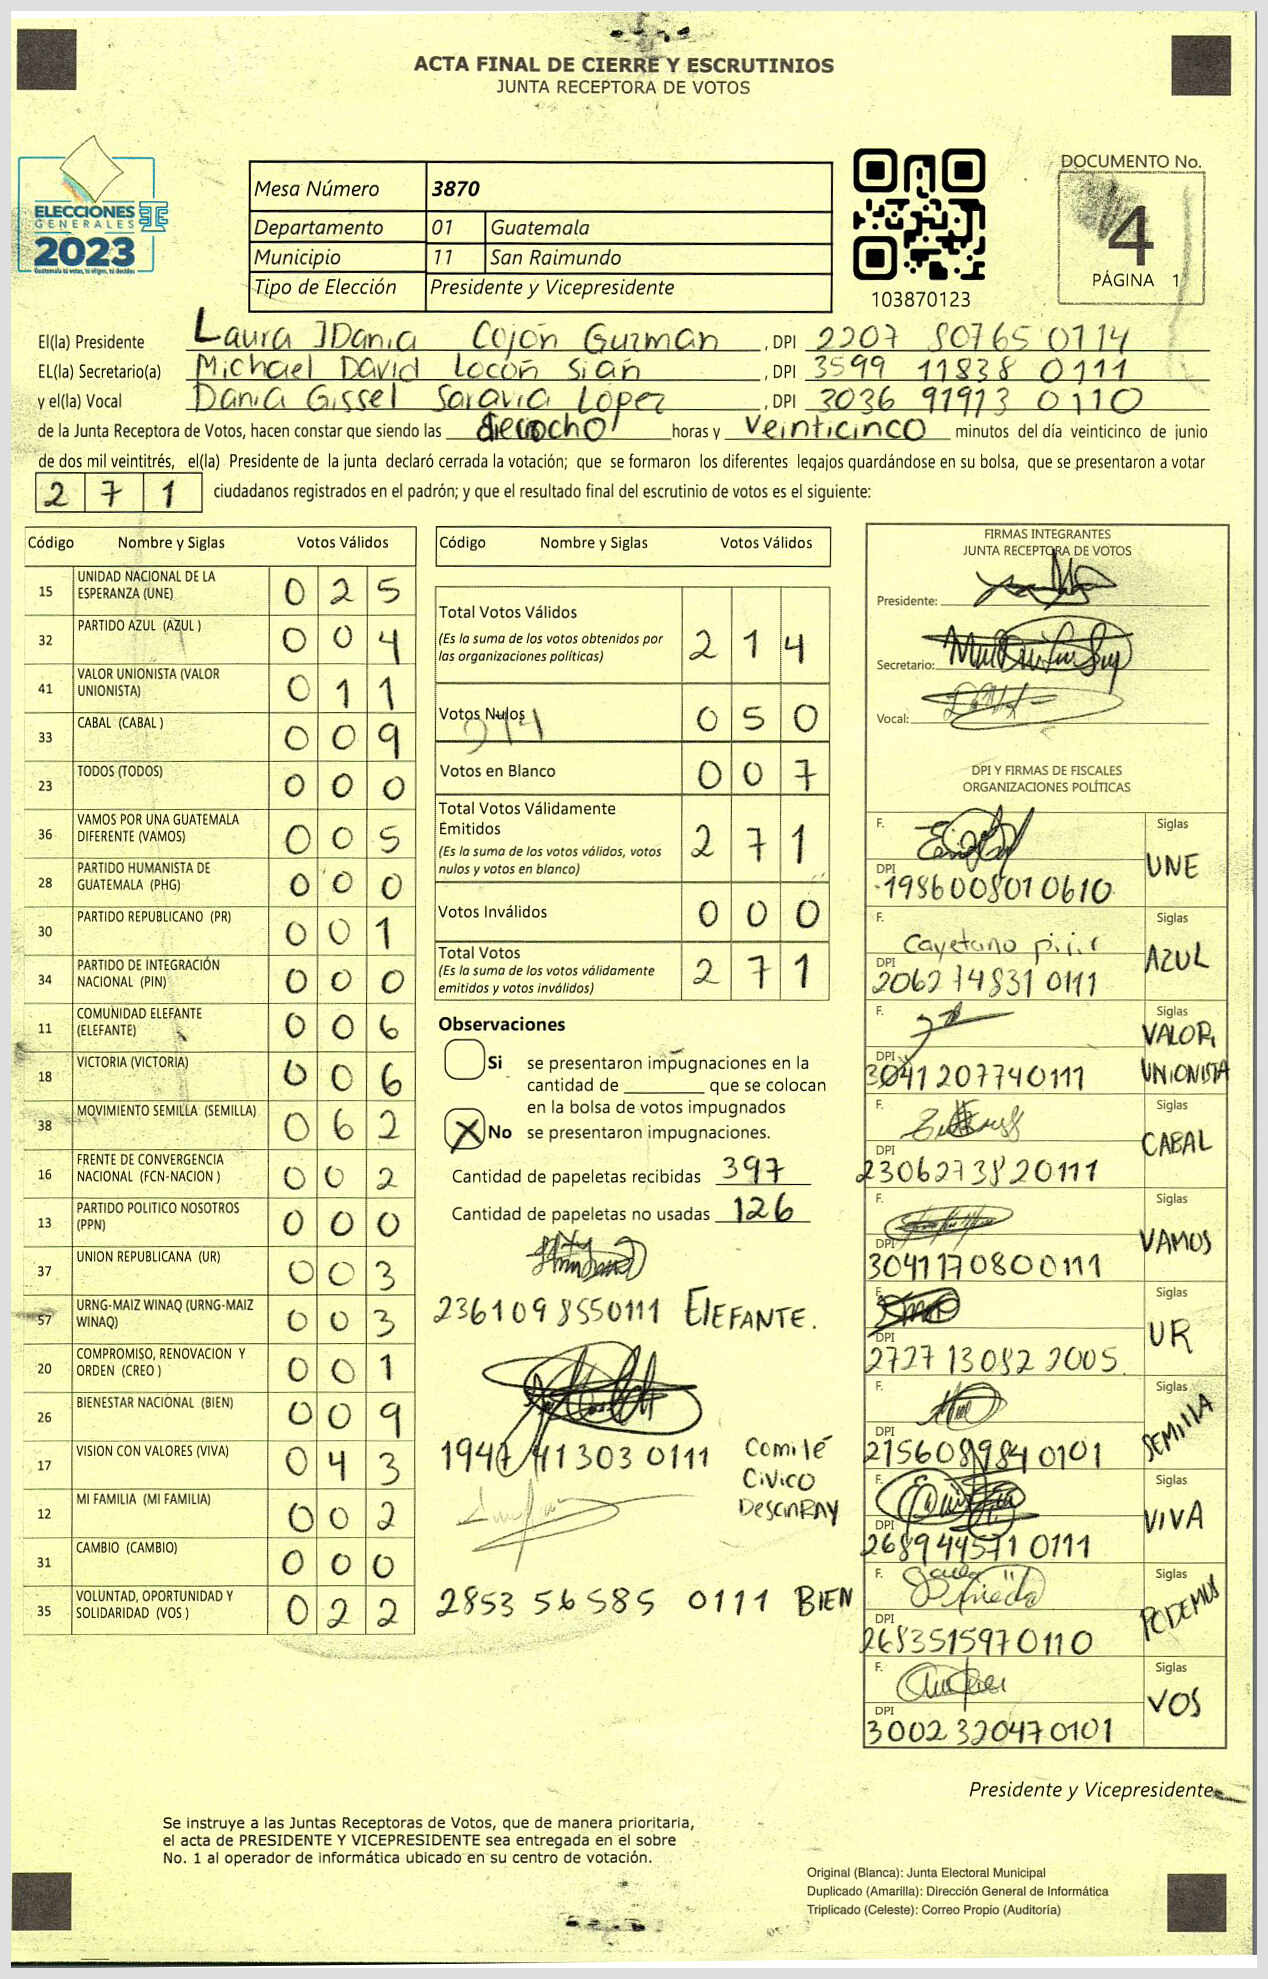 ACTA FINAL DE CIERRE Y ESCRUTINIOS
JUNTA RECEPTORA DE VOTOS
ELECCIONES
GENERALES
2023
Guatemala tú votas, tú eliges, tú decides
Mesa Número 3870
Departamento 01 Guatemala
Municipio 11 San Raimundo
Tipo de Elección Presidente y Vicepresidente
103870123
DOCUMENTO No.
4
PÁGINA 1
El(la) Presidente Laura IDania Cojón Guzmán , DPI 2207 80765 0114
EL(la) Secretario(a) Michael David Locón Sián , DPI 3599 11838 0111
y el(la) Vocal Dania Gissel Saravia López , DPI 3036 91973 0110
de la Junta Receptora de Votos, hacen constar que siendo las horas y veinticinco minutos del día veinticinco de junio
de dos mil veintitrés, el(la) Presidente de la junta declaró cerrada la votación; que se formaron los diferentes legajos guardándose en su bolsa, que se presentaron a votar
271 ciudadanos registrados en el padrón; y que el resultado final del escrutinio de votos es el siguiente:
Código Nombre y Siglas Votos Válidos
15 UNIDAD NACIONAL DE LA ESPERANZA (UNE) 025
32 PARTIDO AZUL (AZUL ) 004
41 VALOR UNIONISTA (VALOR UNIONISTA) 011
33 CABAL (CABAL ) 009
23 TODOS (TODOS) 000
36 VAMOS POR UNA GUATEMALA DIFERENTE (VAMOS) 005
28 PARTIDO HUMANISTA DE GUATEMALA (PHG) 000
30 PARTIDO REPUBLICANO (PR) 001
34 PARTIDO DE INTEGRACIÓN NACIONAL (PIN) 000
11 COMUNIDAD ELEFANTE (ELEFANTE) 006
18 VICTORIA (VICTORIA) 006
38 MOVIMIENTO SEMILLA (SEMILLA) 062
16 FRENTE DE CONVERGENCIA NACIONAL (FCN-NACION ) 002
13 PARTIDO POLITICO NOSOTROS (PPN) 000
37 UNION REPUBLICANA (UR) 003
57 URNG-MAIZ WINAQ (URNG-MAIZ WINAQ) 003
20 COMPROMISO, RENOVACION Y ORDEN (CREO ) 001
26 BIENESTAR NACIONAL (BIEN) 009
17 VISION CON VALORES (VIVA) 043
12 MI FAMILIA (MI FAMILIA) 002
31 CAMBIO (CAMBIO) 000
35 VOLUNTAD, OPORTUNIDAD Y SOLIDARIDAD (VOS ) 022
Código Nombre y Siglas Votos Válidos
Total Votos Válidos 214
(Es la suma de los votos obtenidos por
las organizaciones políticas)
Votos Nulos 050
Votos en Blanco 007
Total Votos Válidamente
Emitidos 271
(Es la suma de los votos válidos, votos
nulos y votos en blanco)
Votos Inválidos 000
Total Votos 271
(Es la suma de los votos válidamente
emitidos y votos inválidos)
Observaciones
Si se presentaron impugnaciones en la
cantidad de ________ que se colocan
en la bolsa de votos impugnados
X No se presentaron impugnaciones.
Cantidad de papeletas recibidas 397
Cantidad de papeletas no usadas 126
2361098550111 ELEFANTE.
1947 41303 0111 Comité
Civico
2853 56585 0111 BIEN
FIRMAS INTEGRANTES
JUNTA RECEPTORA DE VOTOS
Presidente:
Secretario:
Vocal:
DPI Y FIRMAS DE FISCALES
ORGANIZACIONES POLÍTICAS
F. Siglas
DPI 1986008010610 UNE
F. Cayetano Siglas
DPI 2062748310111 AZUL
F. Siglas
DPI 3041207740111 VALOR UNIONISTA
F. Siglas
DPI 2306273820111 CABAL
F. Siglas
DPI 3041170800111 VAMOS
F. Siglas
DPI 2727 13082 2005 UR
F. Siglas
DPI 2156089840101 SEMILLA
F. Siglas
DPI 2689445710111 VIVA
F. Siglas
DPI 2683515970110 PODEMOS
F. Siglas
DPI 3002320470101 VOS
Presidente y Vicepresidente
Se instruye a las Juntas Receptoras de Votos, que de manera prioritaria,
el acta de PRESIDENTE Y VICEPRESIDENTE sea entregada en el sobre
No. 1 al operador de informática ubicado en su centro de votación.
Original (Blanca): Junta Electoral Municipal
Duplicado (Amarilla): Dirección General de Informática
Triplicado (Celeste): Correo Propio (Auditoría)